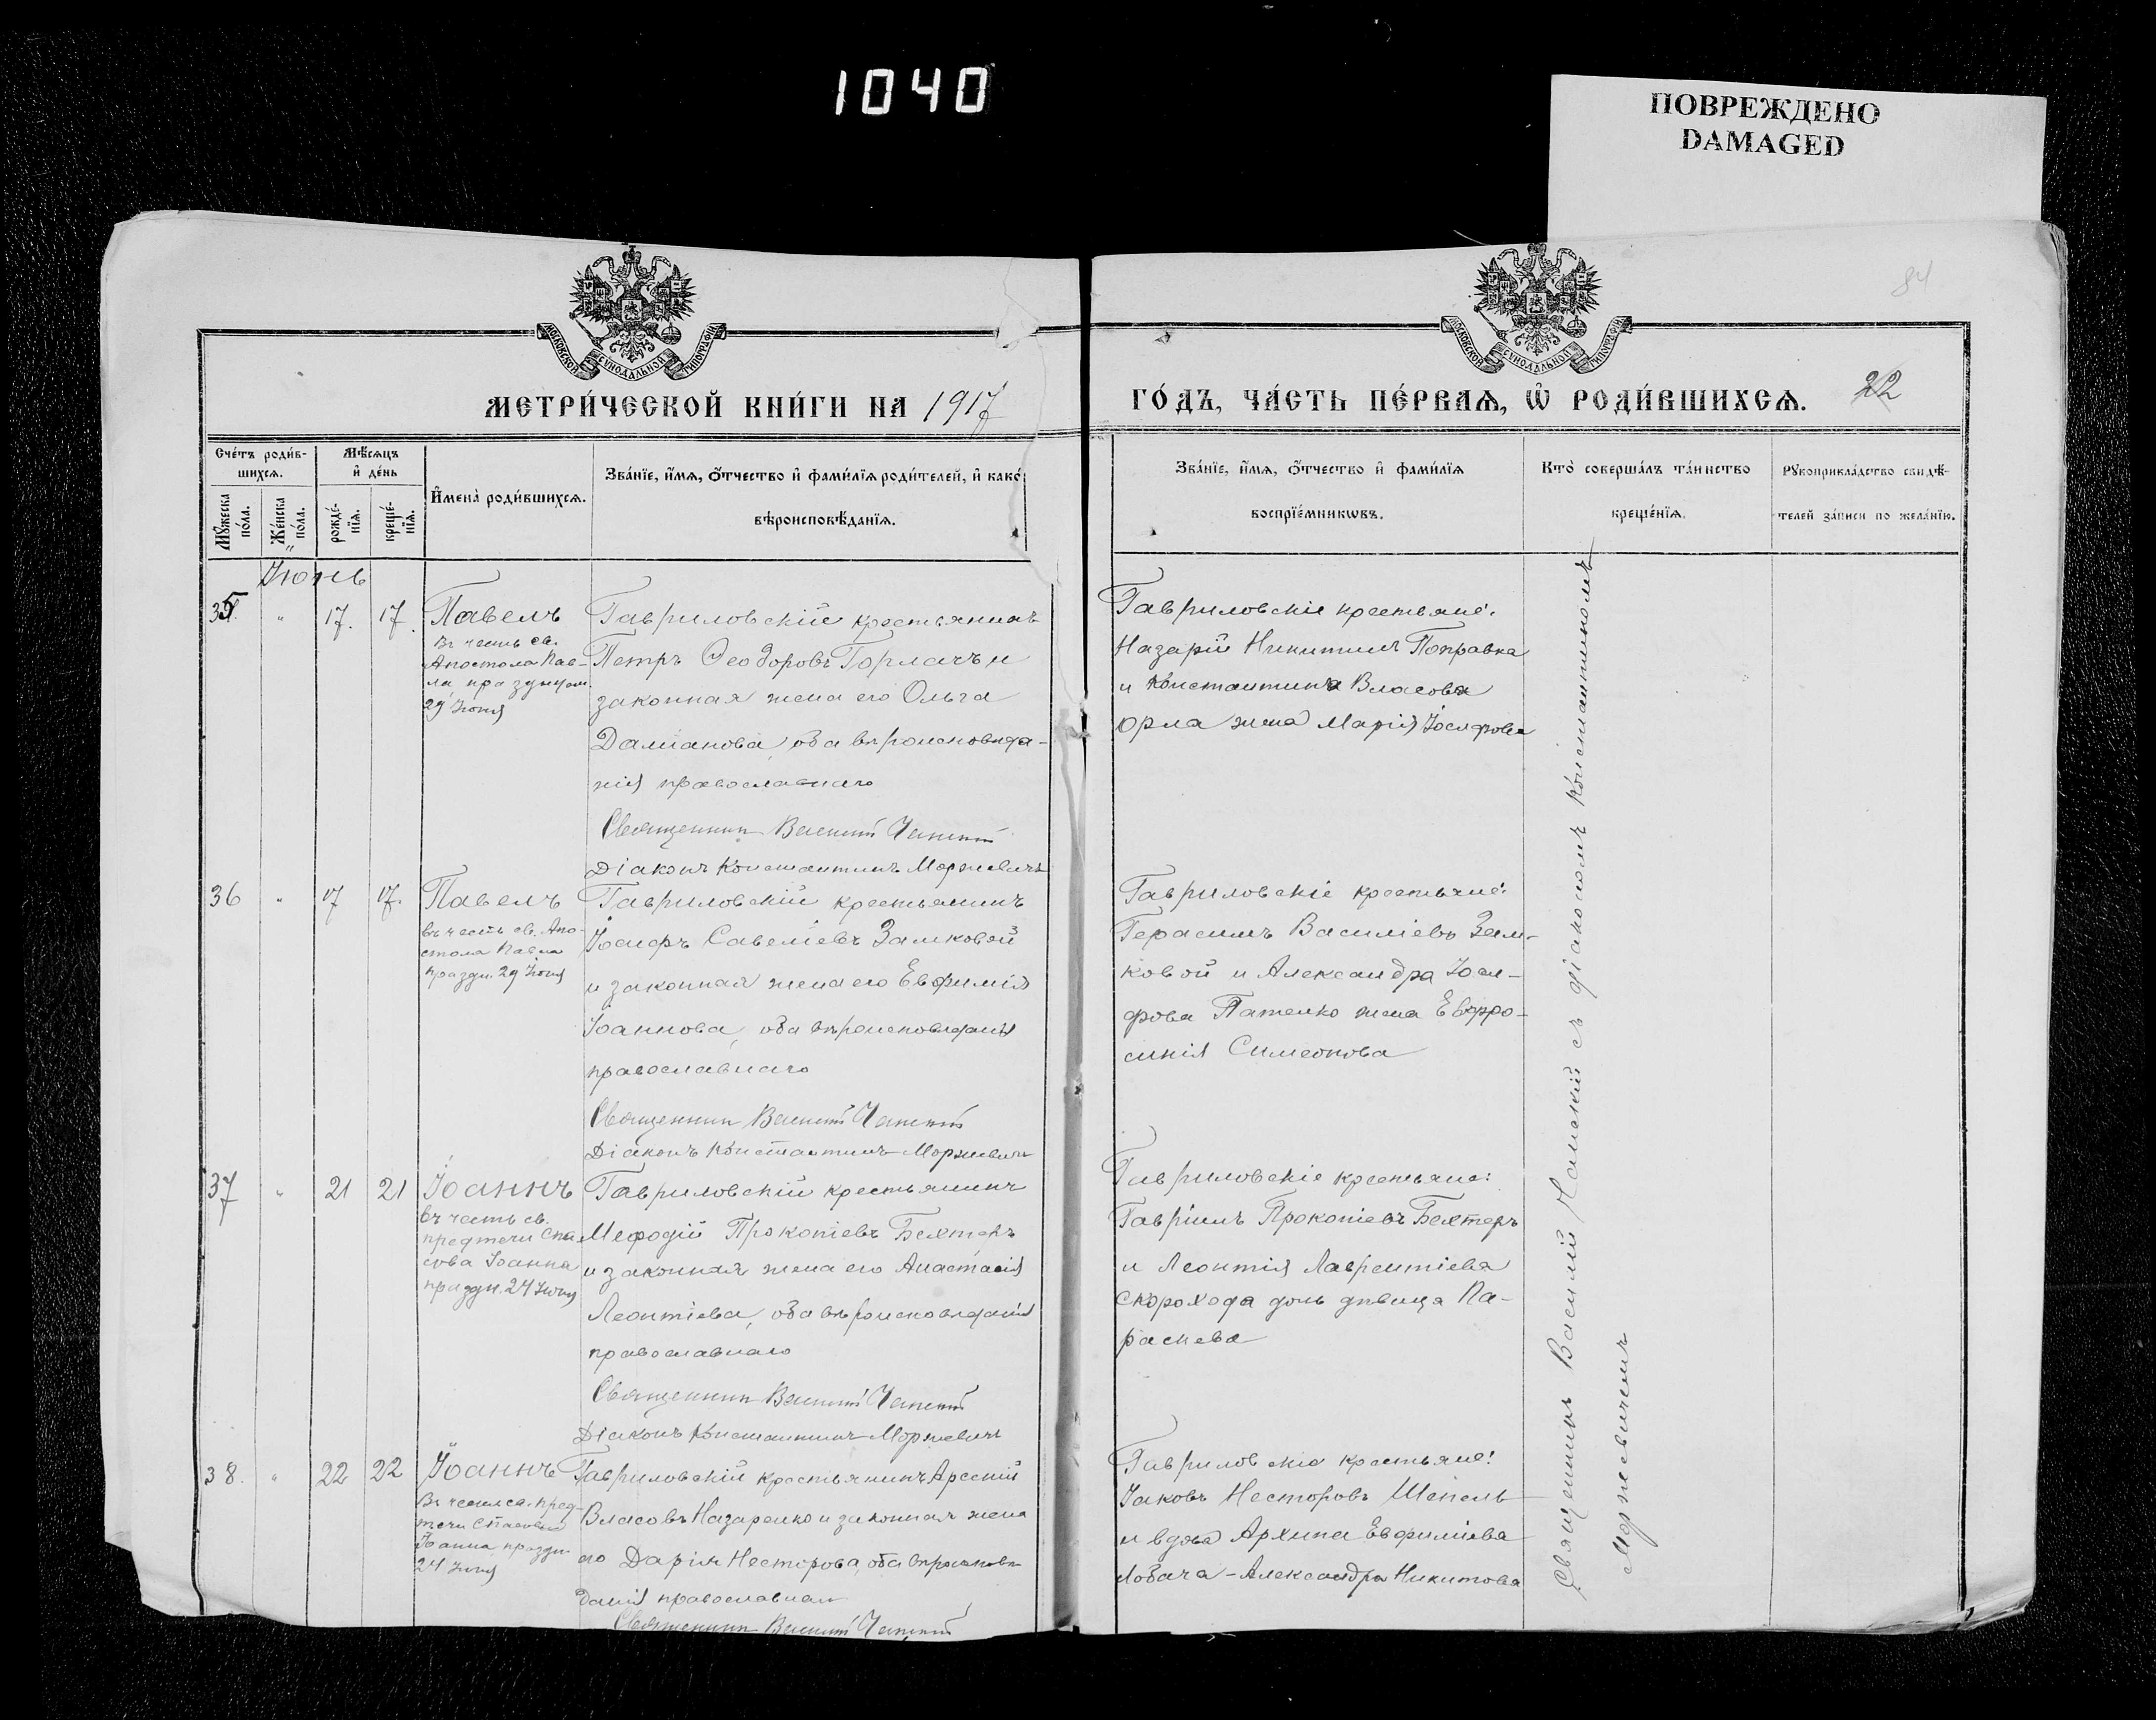 1040
ПОВРЕЖДЕНО
DAMAGED
84
МОСКОВСКОЙ СѴНОДАЛЬНОЙ ТИПОГРАФІИ
МОСКОВСКОЙ СѴНОДАЛЬНОЙ ТИПОГРАФІИ
МЕТРИ́ЧЕСКОЙ КНИ́ГИ НА 1917
ГО́ДЪ, ЧА́СТЬ ПЕ́РВАѦ, Ѽ РОДИ́ВШИХСѦ.
22
Сче́тъ роди́в-
шихсѧ.
Мѣ́сѧцъ
и҆ де́нь
Мꙋ́жеска
по́ла.
Же́нска
по́ла.
рожде́-
нїѧ.
креще́-
нїѧ.
И҆мена̀ роди́вшихсѧ.
Зва́нїе, и҆́мѧ, о҆́тчество и҆ фами́лїѧ роди́телей, и҆ како́
вѣроисповѣ́данїѧ.
Зва́нїе, и҆́мѧ, о҆́тчество и҆ фами́лїѧ
воспрїе́мникѡвъ.
Кто̀ соверша́лъ та́инство
креще́нїѧ.
Рꙋкоприкла́дство свидѣ́-
телей за́писи по жела́нїю.
Іюнь
35 " 17. 17.
Павелъ
Въ честь св.
Апостола Пав-
ла празднуем.
29 Іюня
Гавриловскій крестьянинъ
Петръ Ѳеодоровъ Горлачъ и
законная жена его Ольга
Даміанова, оба вѣроисповѣда-
нія православнаго
Священник Василій Чапскій
Діаконъ Константинъ Моржевичъ
Гавриловскіе крестьяне:
Назарій Никитинъ Поправка
и Константина Власова
Орла жена Марія Іосифова
36 " 17 17.
Павелъ
въ честь св. Апо-
стола Павла
праздн. 29 Іюня
Гавриловскій крестьянинъ
Іосифъ Савеліевъ Замковой
и законная жена его Евфимія
Іоаннова, оба вѣроисповѣданія
православнаго
Священник Василій Чапскій
Діаконъ Константинъ Моржевичъ
Гавриловскіе крестьяне:
Герасимъ Василіевъ Зам-
ковой и Александра Іоси-
фова Патенко жена Евфро-
синія Симеонова
37 " 21 21
Іоаннъ
въ честь св.
предтечи Спа-
сова Іоанна
праздн. 24 Іюня
Гавриловскій крестьянинъ
Меѳодій Прокопіевъ Бехтеръ
и законная жена его Анастасія
Леонтіева, оба вѣроисповѣданія
православнаго
Священник Василій Чапскій
Діаконъ Константинъ Моржевичъ
Гавриловскіе крестьяне:
Гавріилъ Прокопіевъ Бехтеръ
и Леонтія Лаврентіева
Скорохода дочь дѣвица Па-
раскева
38. " 22 22
Іоаннъ
Въ честь св. пред-
течи Спасова
Іоанна, праздн.
24 Іюня
Гавриловскій крестьянинъ Арсеній
Власовъ Назаренко и законная жена
его Дарія Несторова, оба вѣроисповѣ-
данія православнаго
Священник Василій Чапскій
Гавриловскіе крестьяне:
Іаковъ Несторовъ Шепель
и вдова Архипа Евфиміева
Лобача - Александра Никитова
Священникъ Василій Чапскій съ діакономъ Константиномъ
Моржевичемъ